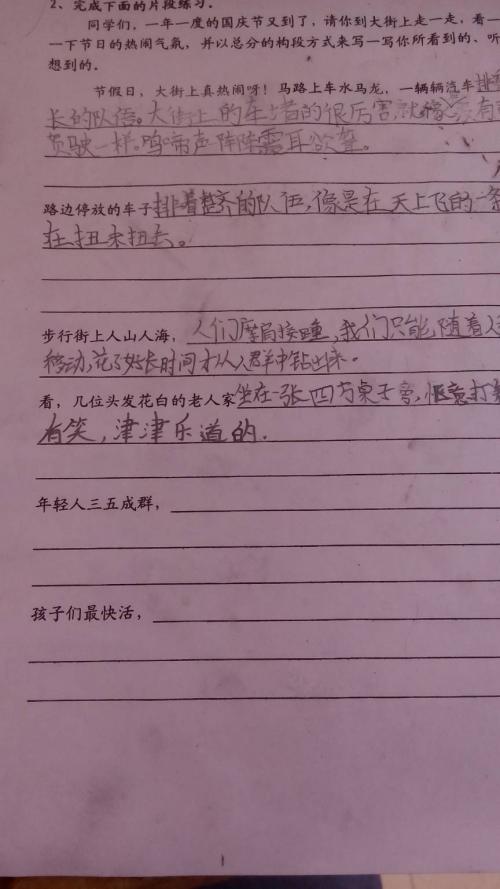 2、完成下面的片段练习.
同学们，一年一度的国庆节又到了，请你到大街上走一走，看一
一下节日的热闹气氛，并以总分的构段方式来写一写你所看到的、听
想到的。
节假日，大街上真热闹呀！马路上车水马龙，一辆辆汽车排
长的队伍。大街上的车堵的很厉害，就像
驶一样。鸣笛声阵阵震耳欲聋。
路边停放的车子排着整齐的队伍，像是在天上飞的一条
在扭来扭去。
步行街上人山人海，人们摩肩接踵，我们只能随着人
移动，花了好长时间才从人群中钻出来。
看，几位头发花白的老人家坐在一张四方桌子旁，惬意打
有笑，津津乐道的.
年轻人三五成群，
孩子们最快活，
1